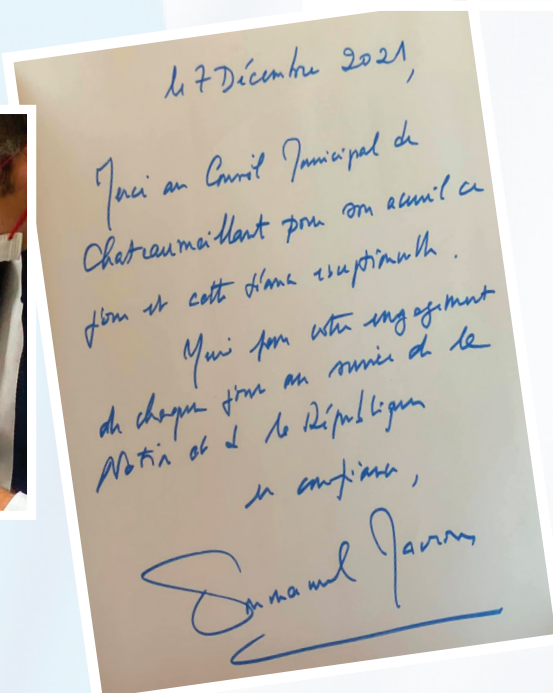 le 7 Décembre 2021,
Merci au Conseil Municipal de
Chateaumeillant pour son accueil ce
jour et cette séance exceptionnelle.
Merci pour votre engagement
de chaque jour au service de la
Nation et de la République
en confiance,
Emmanuel Macron